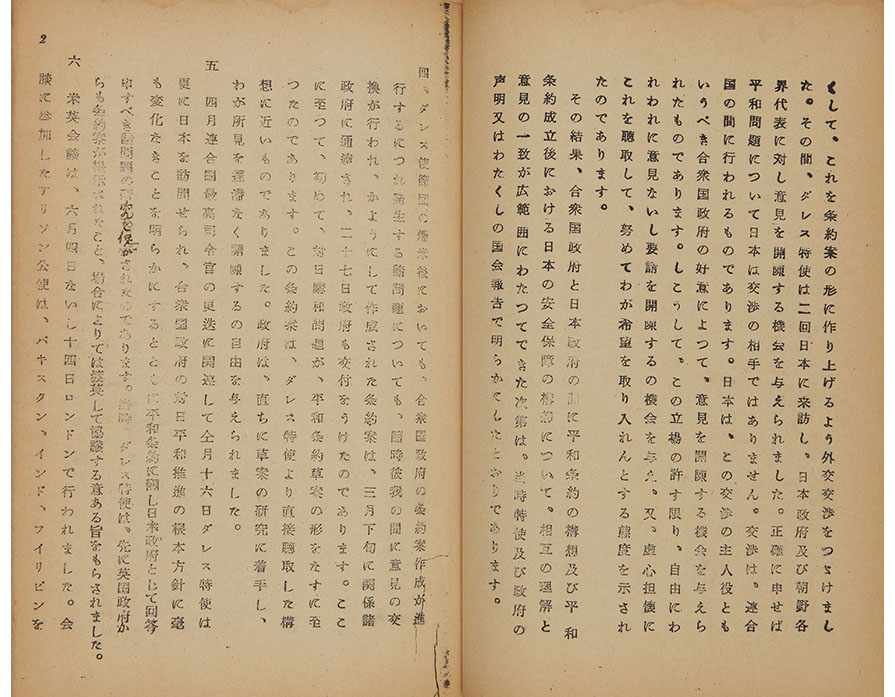 くして、これを条約案の形に作り上げるよう外交交渉をつゞけまし
た。その間、ダレス特使は二回日本に来訪し、日本政府及び朝野各
界代表に対し意見を開陳する機会を与えられました。正確に申せば
平和問題について日本は交渉の相手ではありません。交渉は、連合
国の間に行われるものであります。日本は、この交渉の主人役とも
いうべき合衆国政府の好意によつて、意見を開陳する機会を与えら
れたものであります。しこうして、この立場の許す限り、自由にわ
れわれに意見ないし要請を開陳するの機会を与え、又、虚心担懐に
これを聴取して、努めてわが希望を取り入れんとする態度を示され
たのであります。
その結果、合衆国政府と日本政府の間に平和条約の構想及び平和
条約成立後における日本の安全保障の構想について、相互の理解と
意見の一致が広範囲にわたつてできた次第は、当時特使及び政府の
声明又はわたくしの国会報告で明らかにしたとおりであります。
四、ダレス使節団の離米後においても、合衆国政府の条約案作成が進
行するにつれ発生する諸問題についても、随時彼我の間に意見の交
換が行われ、かようにして作成された条約案は、三月下旬に関係諸
政府に通達され、二十七日政府も交付をうけたのであります。ここ
に至つて、初めて、対日講和問題が、平和条約草案の形をなすに至
つたのであります。この条約案は、ダレス特使より直接聴取した構
想に近いものでありました。政府は、直ちに草案の研究に着手し、
わが所見を遅滞なく開陳するの自由を与えられました。
五 四月連合国最高司令官の更迭に関連して仝月十六日ダレス特使は
更に日本を訪問せられ、合衆国政府の対日平和推進の根本方針に毫
も変化なきことを明らかにするとともに平和条約に関し日本政府として回答
申すべき諸問題の研究を促がされたのであります。当時、ダレス特使は、先に英国政府か
らも条約案が提示されたこと、場合によりては渡英して協議する意ある旨をもらされました。
六、米英会談は、六月四日ないし十四日ロンドンで行われました。会
談に参加したアリソン公使は、パキスタン、インド、フイリピンを
2